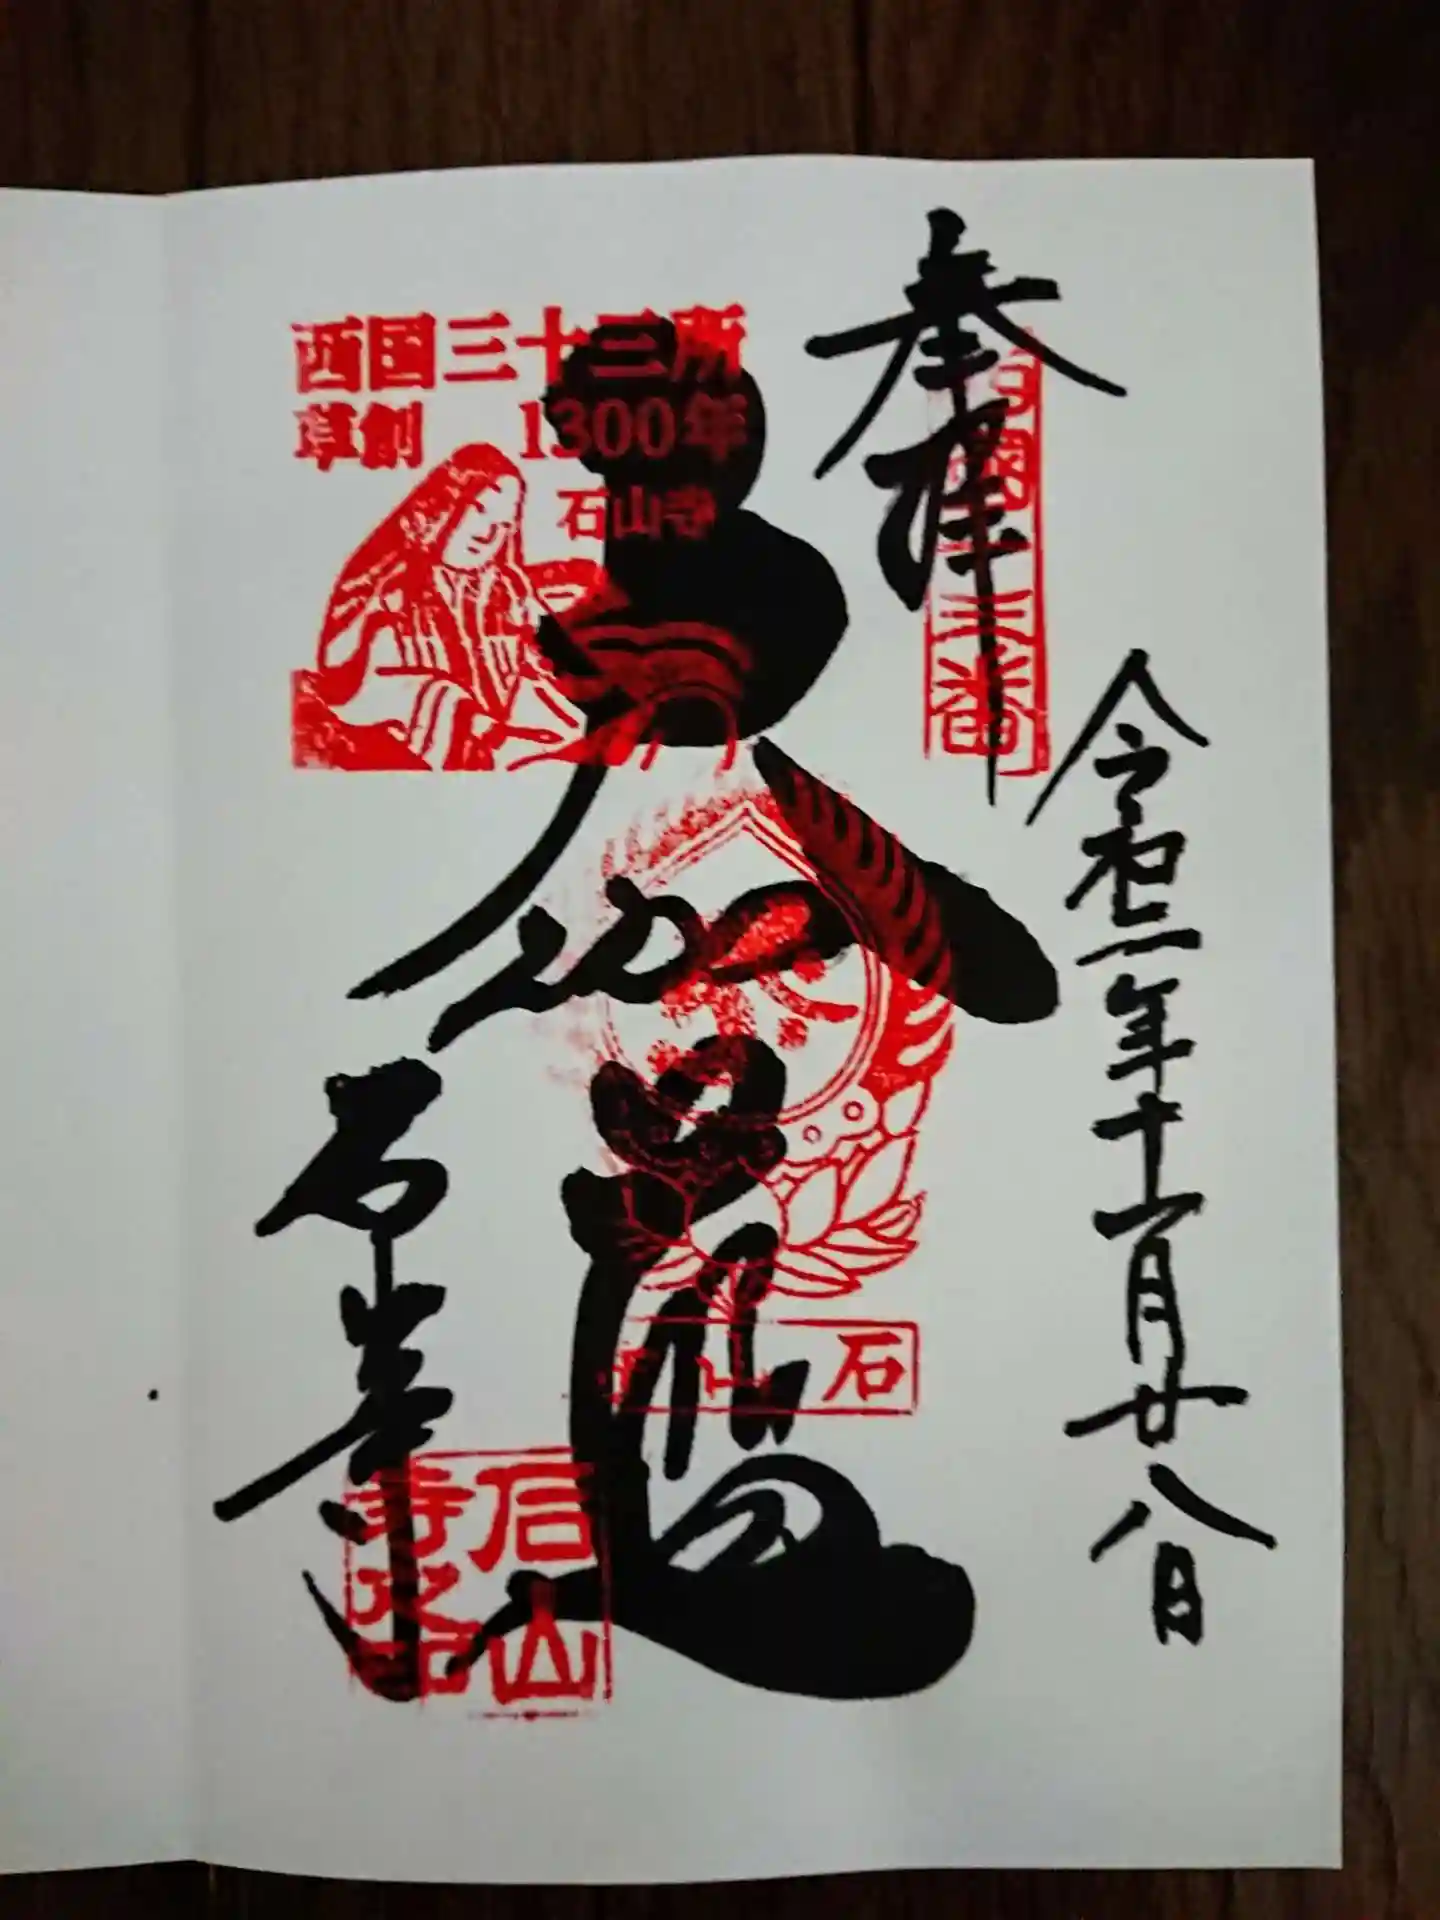 奉拝
西国十三番
令和二年十一月廿八日
西国三十三所
草創 1300年
石山寺
大伽藍
石山
石山寺
石山寺之印